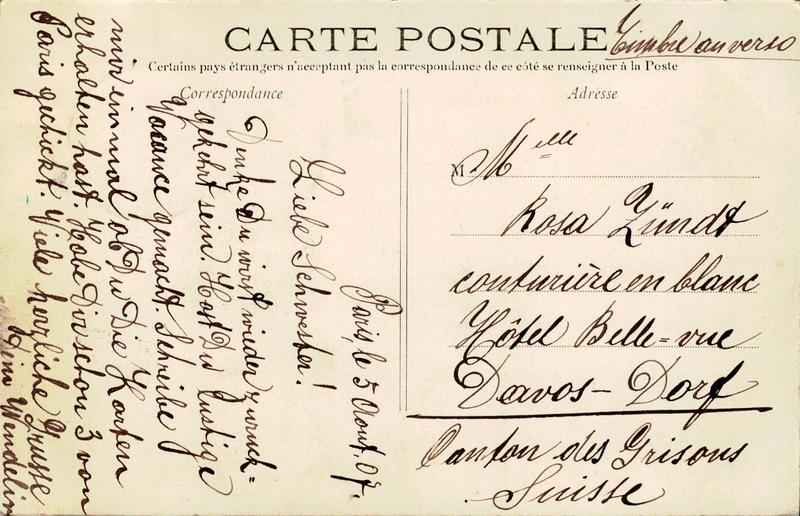 CARTE POSTALE
Timbre au verso
Certains pays étrangers n'acceptent pas la correspondance de ce côté se renseigner à la Poste
Correspondance
Adresse
Paris, le 5 Aout. 07.
Liebe Schwester!
Denke Du wirst wieder zurück=
gekehrt sein. Hast Du lustige
Vacance gemacht. Schreibe
mir einmal ob Du Die Karten
erhalten hast. Habe Dir schon 3 von
Paris geschickt. Viele herzliche Grüsse
Dein Wendelin
M Melle
Rosa Zündt
couturière en blanc
Hôtel Belle=vue
Davos-Dorf
Canton des Grisons
Suisse